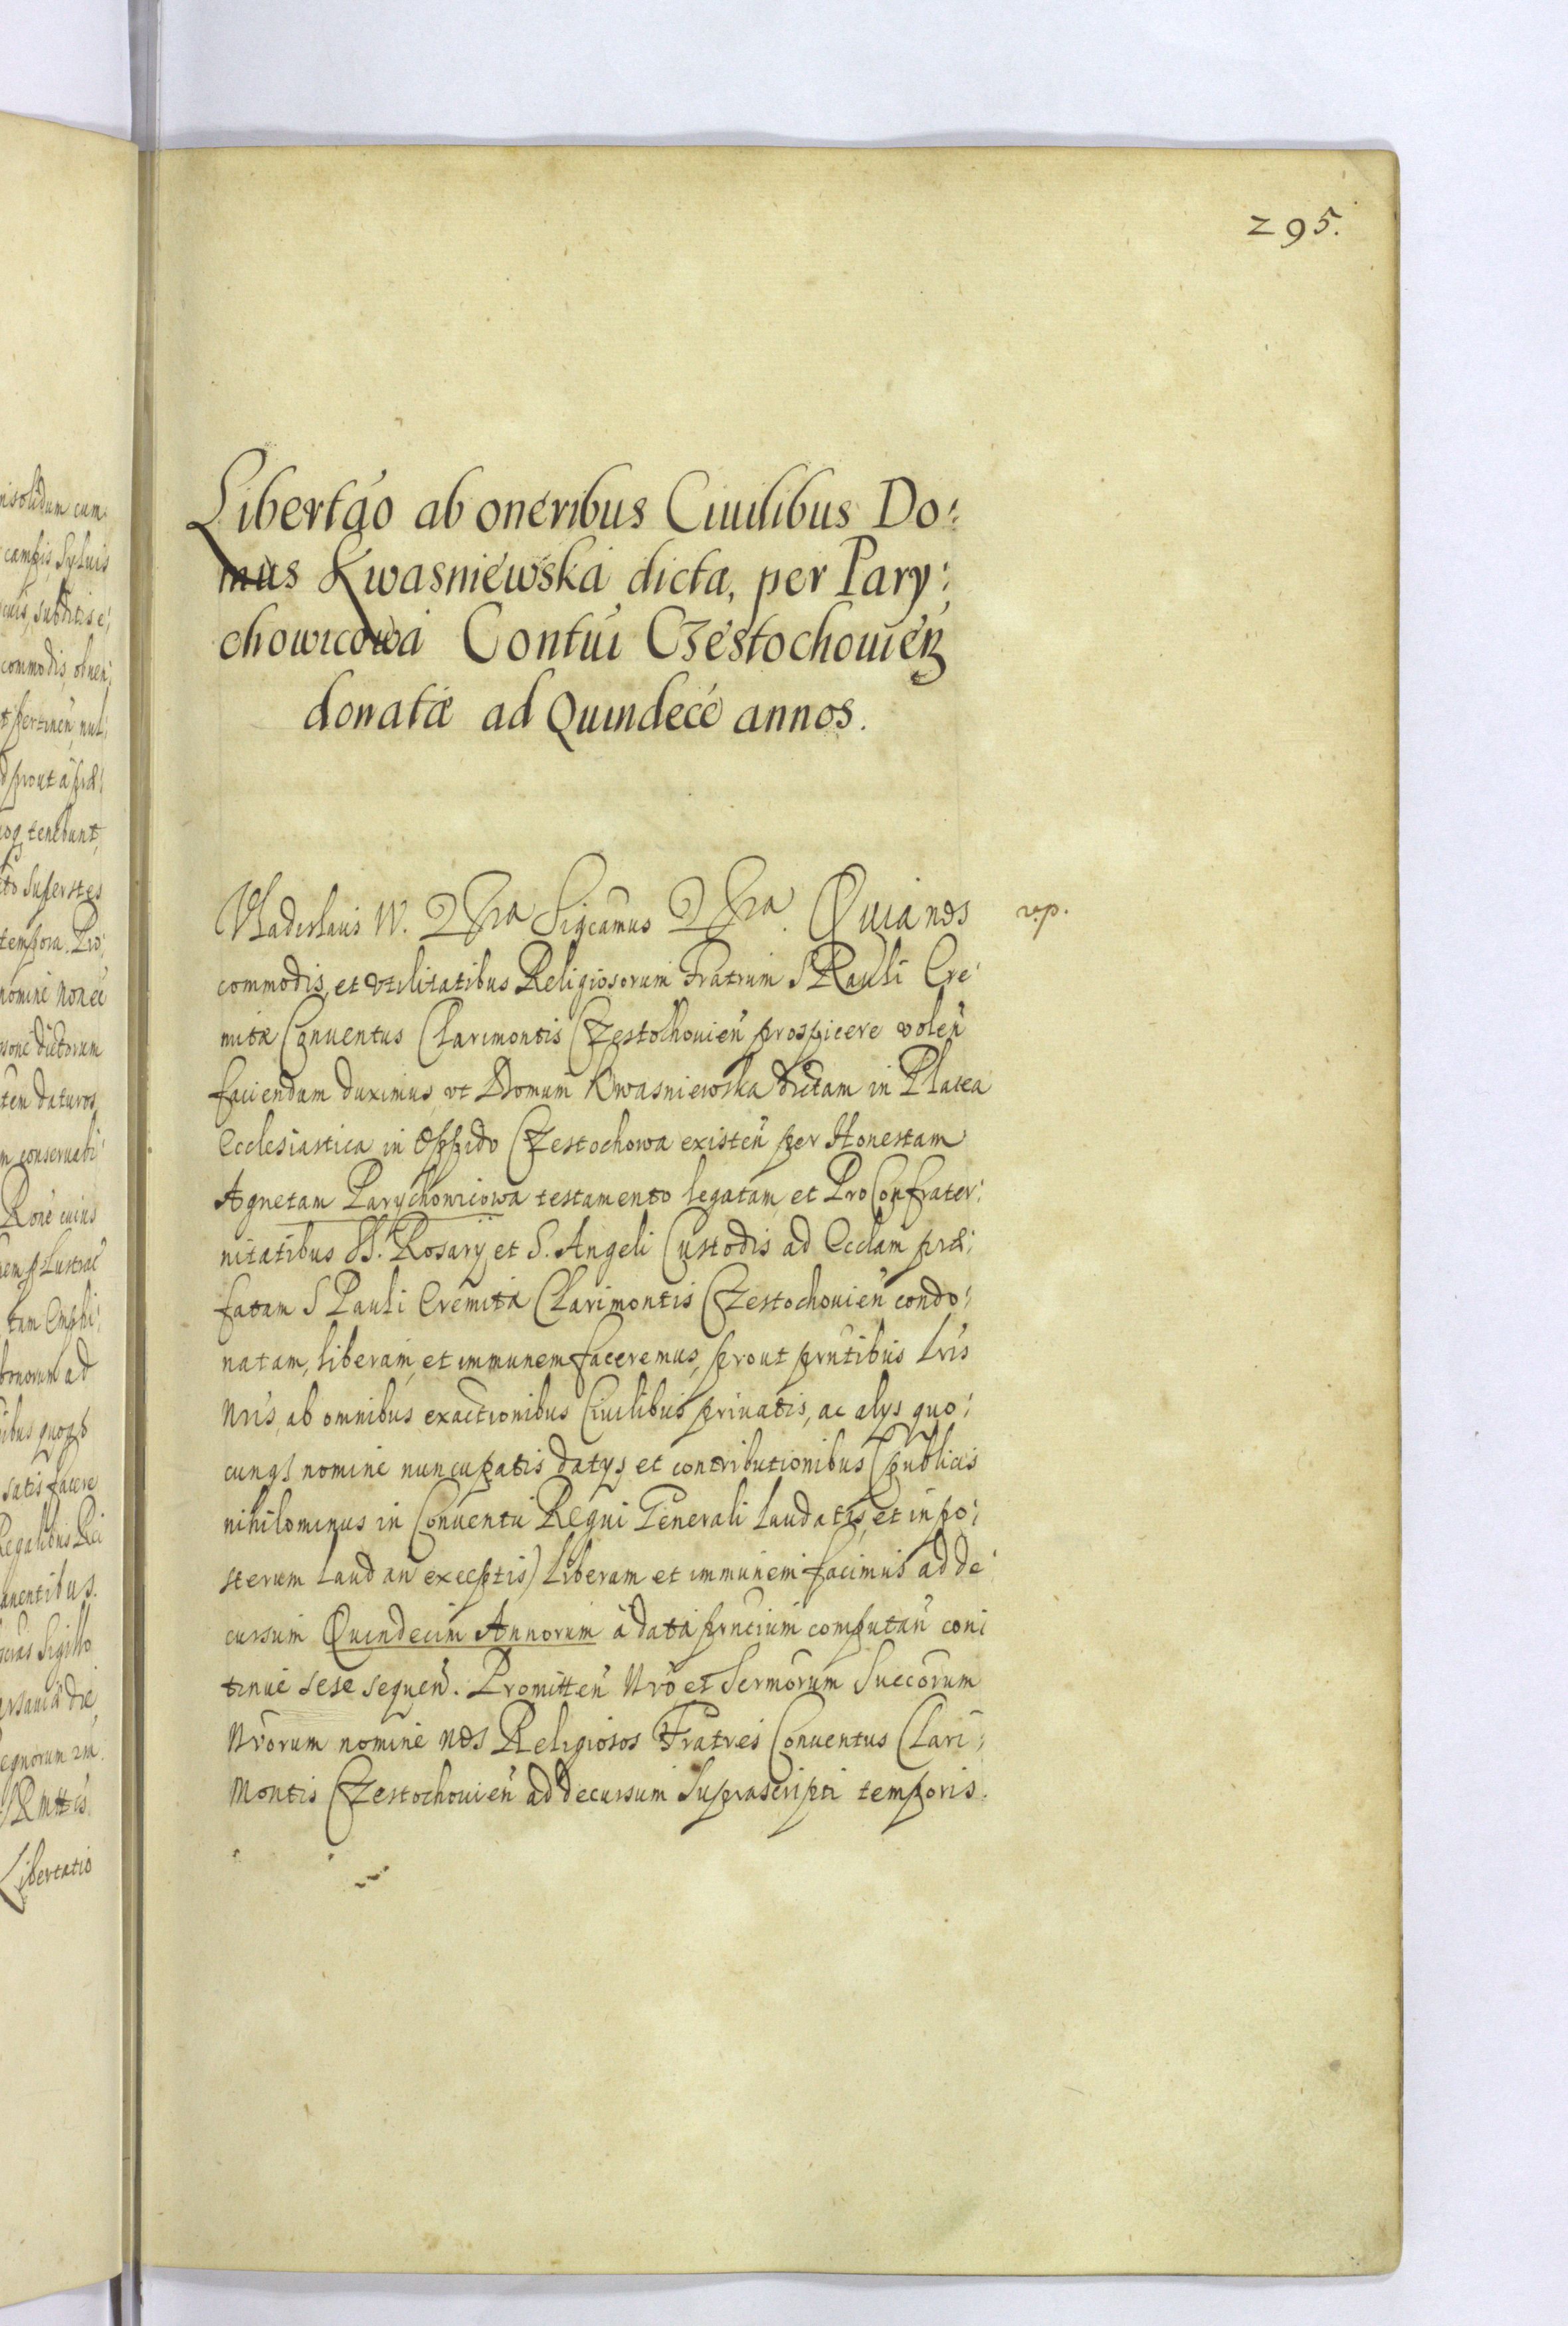 295.
Libertão ab oneribus Ciuilibus Do:
mus Kwasniewska dicta, per Pary:
chowicowa Contui Czestochouień
donatæ ad Quindecē annos.
Vladislaus IV. Sigcamus Quia nos
rp.
commodis, et vtilitatibus Religiosorum Fratrum S Pauli Ere:
mitæ Conuentus Clarimontis Czestochouień prospicere voleń
faciendam duximus, vt Domum Kwasniewska dictam in Platea
Ecclesiastica in Oppido Czestochowa existeń per Honestam
Agnetam Parychowicowa testamento legatam, et Pro Confrater:
nitatibus SS. Rosarij et S. Angeli Custodis ad Ecclam præ:
fatam S Pauli Eremitæ Clarimontis Czestochouień condo:
natam, liberam, et immunem faceremus, prout pñtibus Lris
Nris, ab omnibus exactionibus Ciuilibus priuatis, ac alys quo:
cunq nomine nuncupatis datys, et contributionibus (publicis
nihilominus in Conuentu Regni Generali laudatis, et in po:
sterum laudań exceptis) liberam et immunem facimus ad de:
cursum Quindecim Annorum à data pñtium computań con:
tinue sese sequeń. Promitteń Nro et Sermorum Succorum
Nrorum nomine nos Religiosos Fratres Conuentus Clari:
Montis Czestochouień ad decursum suprascripti temporis.